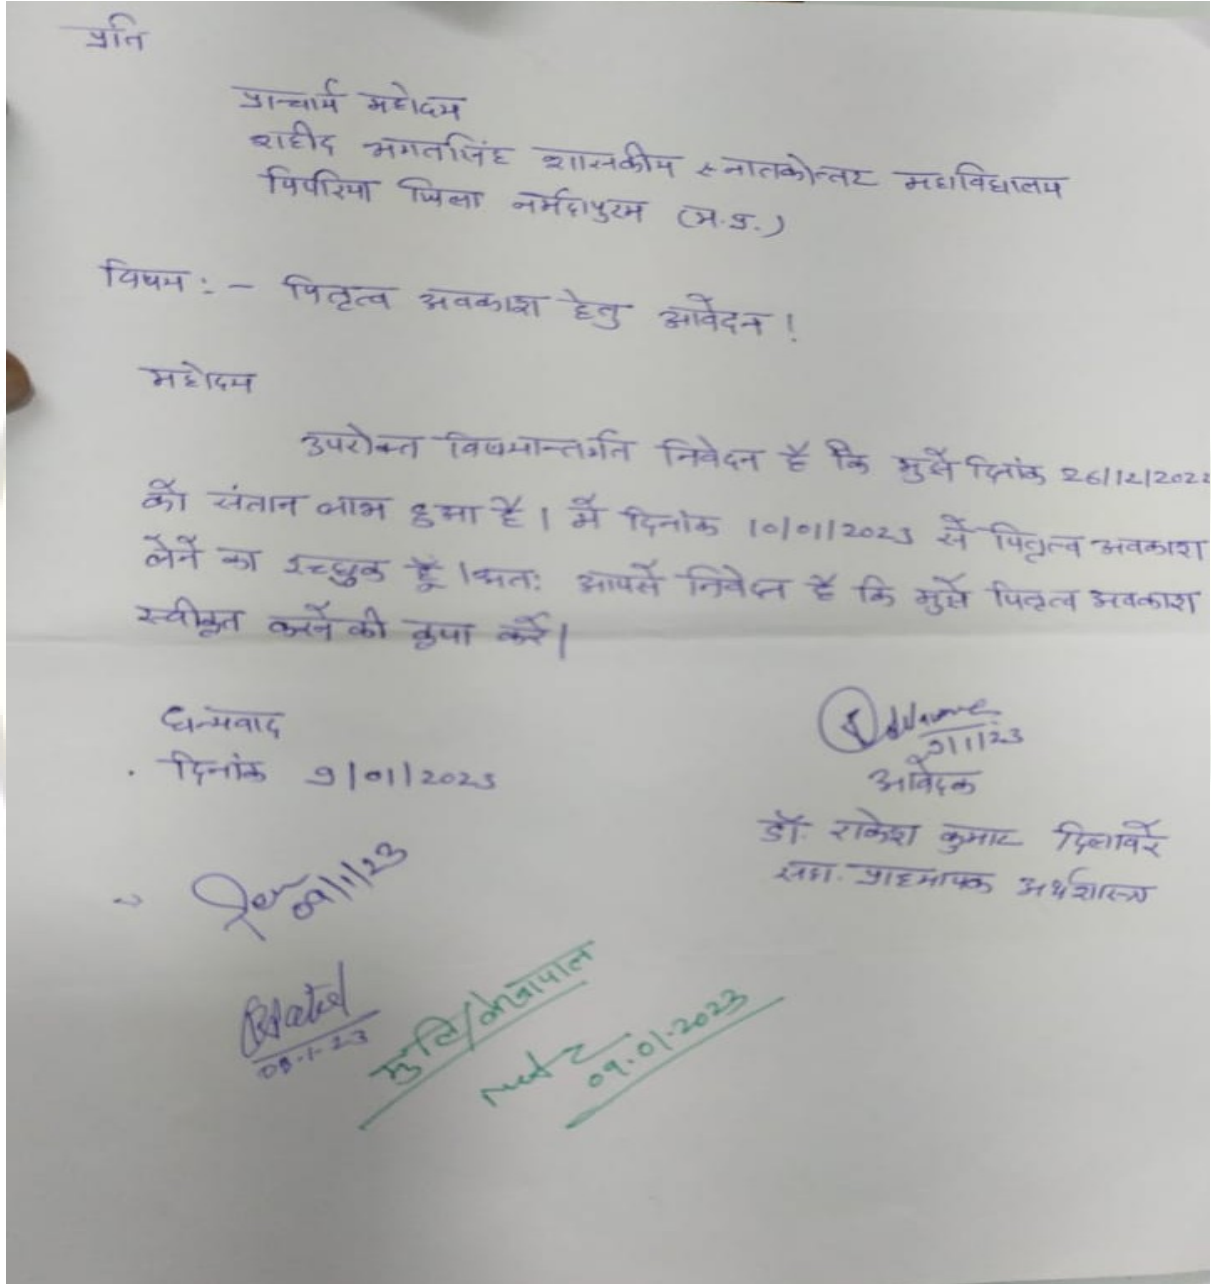 प्रति
प्राचार्य महोदय
शहीद भगतसिंह शासकीय स्नातकोत्तर महाविद्यालय
पिपरिया जिला नर्मदापुरम (म.प्र.)
विषय :- पितृत्व अवकाश हेतु आवेदन !
महोदय
उपरोक्त विषयान्तर्गत निवेदन है कि मुझे दिनांक 26/12/2022
को संतान लाभ हुआ है। मैं दिनांक 10/01/2023 से पितृत्व अवकाश
लेने का इच्छुक हूँ। अतः आपसे निवेदन है कि मुझे पितृत्व अवकाश
स्वीकृत करने की कृपा करें।
धन्यवाद
दिनांक 9/01/2023
9/1/23
आवेदक
डॉ. राकेश कुमार दिलावरे
सहा. प्राध्यापक अर्थशास्त्र
09/1/23
09-1-23
मु.लि/लेखापाल
09.01.2023